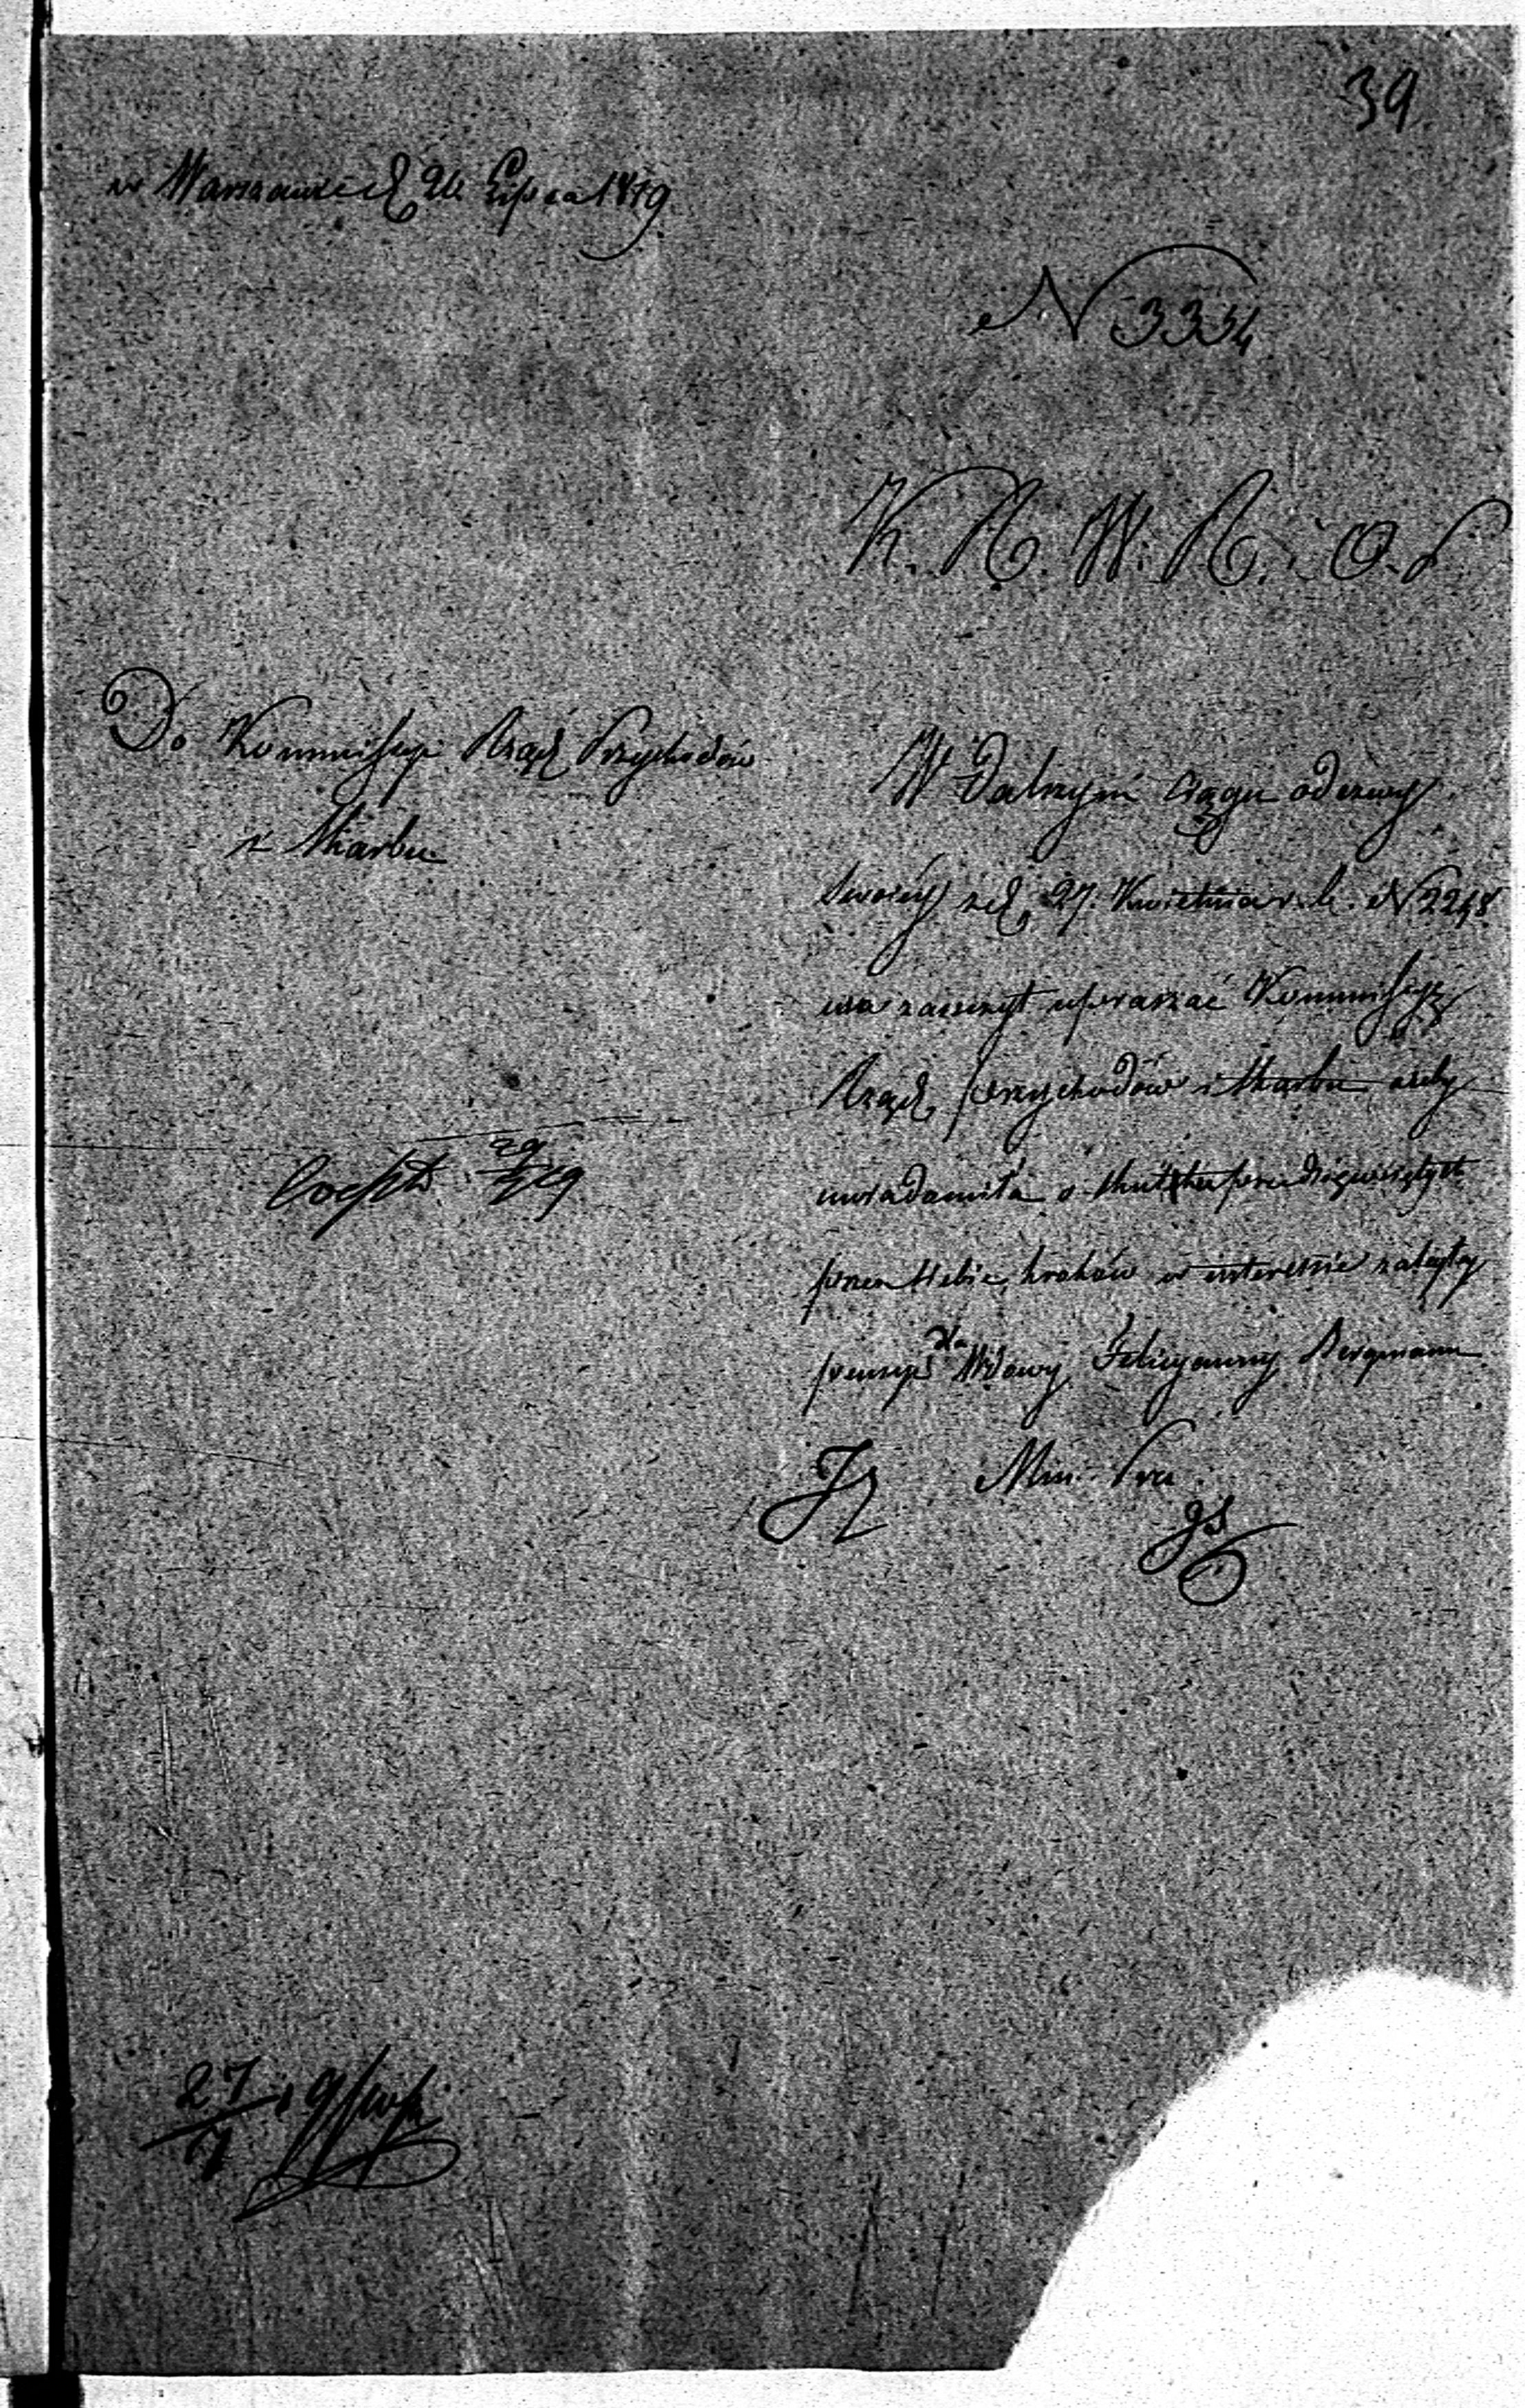 39.
w Warszawie d. 26 Lipca 1819
N 3334
K. R. W. R. i O. P.
Do Kommissyi Rząd. Przychodów
i Skarbu
W dalszym ciągu odezwy
swoiéy z d. 27. Kwietnia r. b. N 2248
ma zaszczyt upraszać Kommissyą
Rząd. Przychodów i Skarbu ażeby
uwiadomiła o skutku przedsięwziętych
przez siebie kroków w interessie zaległéy
pensyi dla Wdowy Felicyanny Bergmann
Min. Pre.
29/7 19
27/7